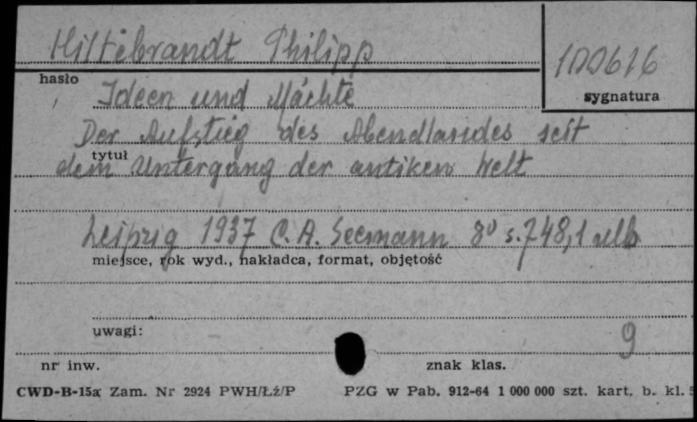 Hiltebrandt Philipp
100616
hasło
sygnatura
Ideen und Mächte
Der Aufstieg des Abendlandes seit
tytuł
dem Untergang der antiken Welt
Leipzig 1937 C. A. Seemann 8° s. 748, 1 nlb
miejsce, rok wyd., nakładca, format, objętość
uwagi:
9
nr inw.
znak klas.
CWD-B-15a Zam. Nr 2924 PWH/Łź/P
PZG w Pab. 912-64 1 000 000 szt. kart. b. kl. 5